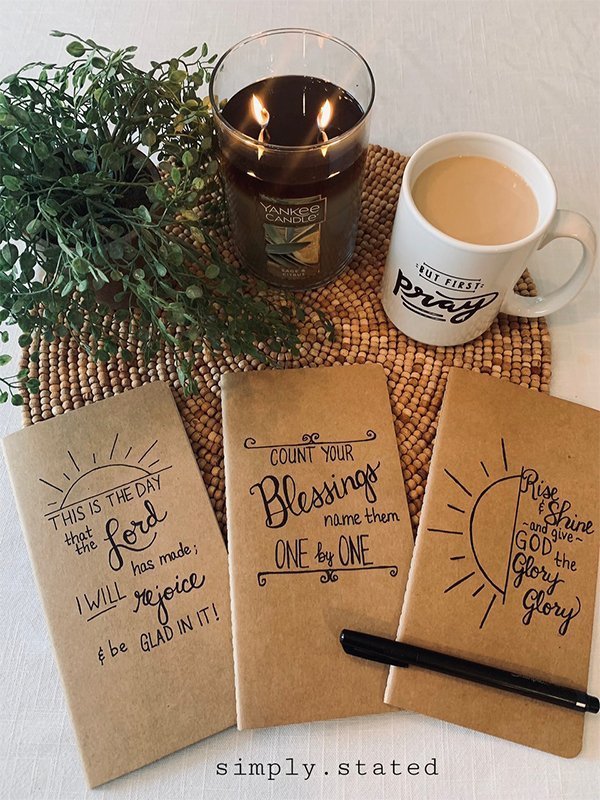 YANKEE
CANDLE
SAGE &
CITRUS
BUT FIRST
pray
THIS IS THE DAY
that
the Lord
has made;
I WILL rejoice
& be GLAD IN IT!
COUNT YOUR
Blessings
name them
ONE by ONE
Rise
& Shine
-and give-
GOD the
Glory
Glory
simply.stated